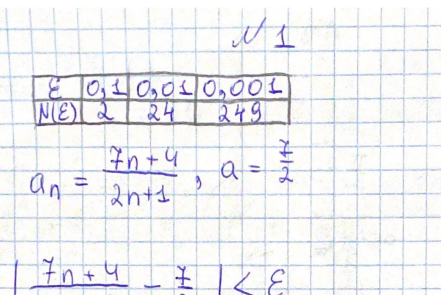 № 1
ε 0,1 0,01 0,001
N(ε) 2 24 249
aₙ = (7n+4)/(2n+1), a = 7/2
| (7n+4)/ - 7/ | < ε